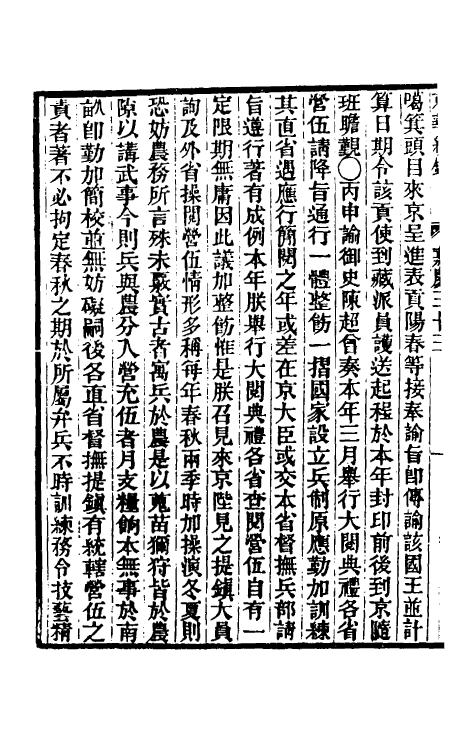 噶箕頭目來京呈進表貢陽春等接奉諭旨卽傳諭該國王並計
算日期令該貢使到藏派員護送起程於本年封印前後到京隨
班瞻覲〇丙申諭御史陳超曾奏本年三月舉行大閱典禮各省
營伍請降旨通行一體整飭一摺國家設立兵制原應勤加訓練
其直省遇應行簡閱之年或差在京大臣或交本省督撫兵部請
旨遵行著有成例本年朕舉行大閱典禮各省查閱營伍自有一
定限期無庸因此議加整飭惟是朕召見來京陛見之提鎮大員
詢及外省操閱營伍情形多稱每年春秋兩季時加操演冬夏則
恐妨農務所言殊未覈實古者寓兵於農是以蒐苗獮狩皆於農
隙以講武事今則兵與農分入營充伍者月支糧餉本無事於南
畝卽勤加簡校並無妨礙嗣後各直省督撫提鎮有統轄營伍之
責者著不必拘定春秋之期於所屬弁兵不時訓練務令技藝精